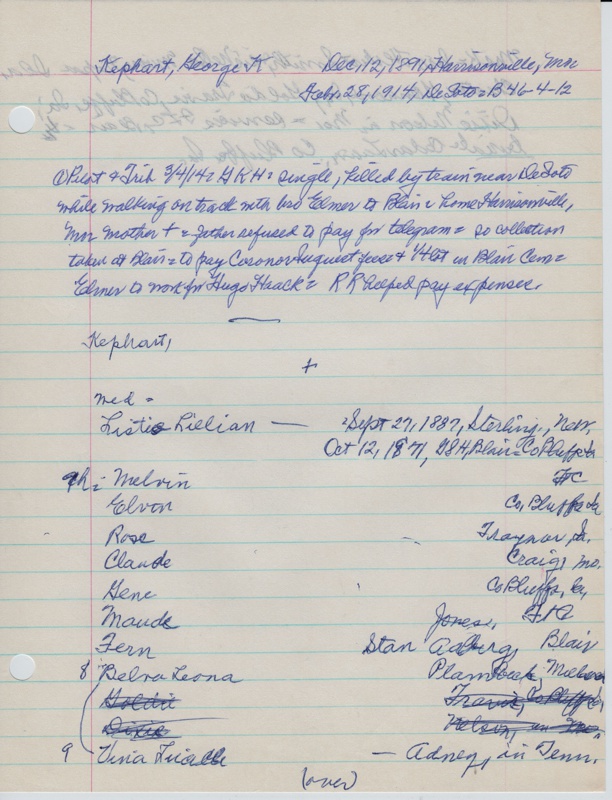 Kephart, George K Dec, 12, 1891, Harrisonville, Mo
Feb. 28, 1914, DeSoto = B 46-4-12
Pilot & Trib 3/4/14 = GKH = single, killed by train near DeSoto
while walking on track with bro Elmer to Blair = home Harrisonville,
Mo Mother + = father refused to pay for telegram = so collection
taken at Blair = to pay Coronor August fees + lot in Blair Cem =
Elmer to work for Hugo Haack = RR helped pay expenses.
Kephart,
+
med =
Lillian — = Sept 27, 1887, Sterling, Neb.
Oct 12, 1971, 284, Blair = Co Bluffs Ia
9 Ch = Melvin FtC
Elvon Co, Bluffs Ia
Rose Traynor, Ia.
Claude Craig, Mo.
Gene Co Bluffs, Ia,
Maude Jones, FtC
Fern Stan Adberg, Blair
8 Belva Leona Plambeck,
Goldie Travis, Co Bluffs,
Dixie Nelson, in Mo.
9 — Adney, in Tenn.
(over)